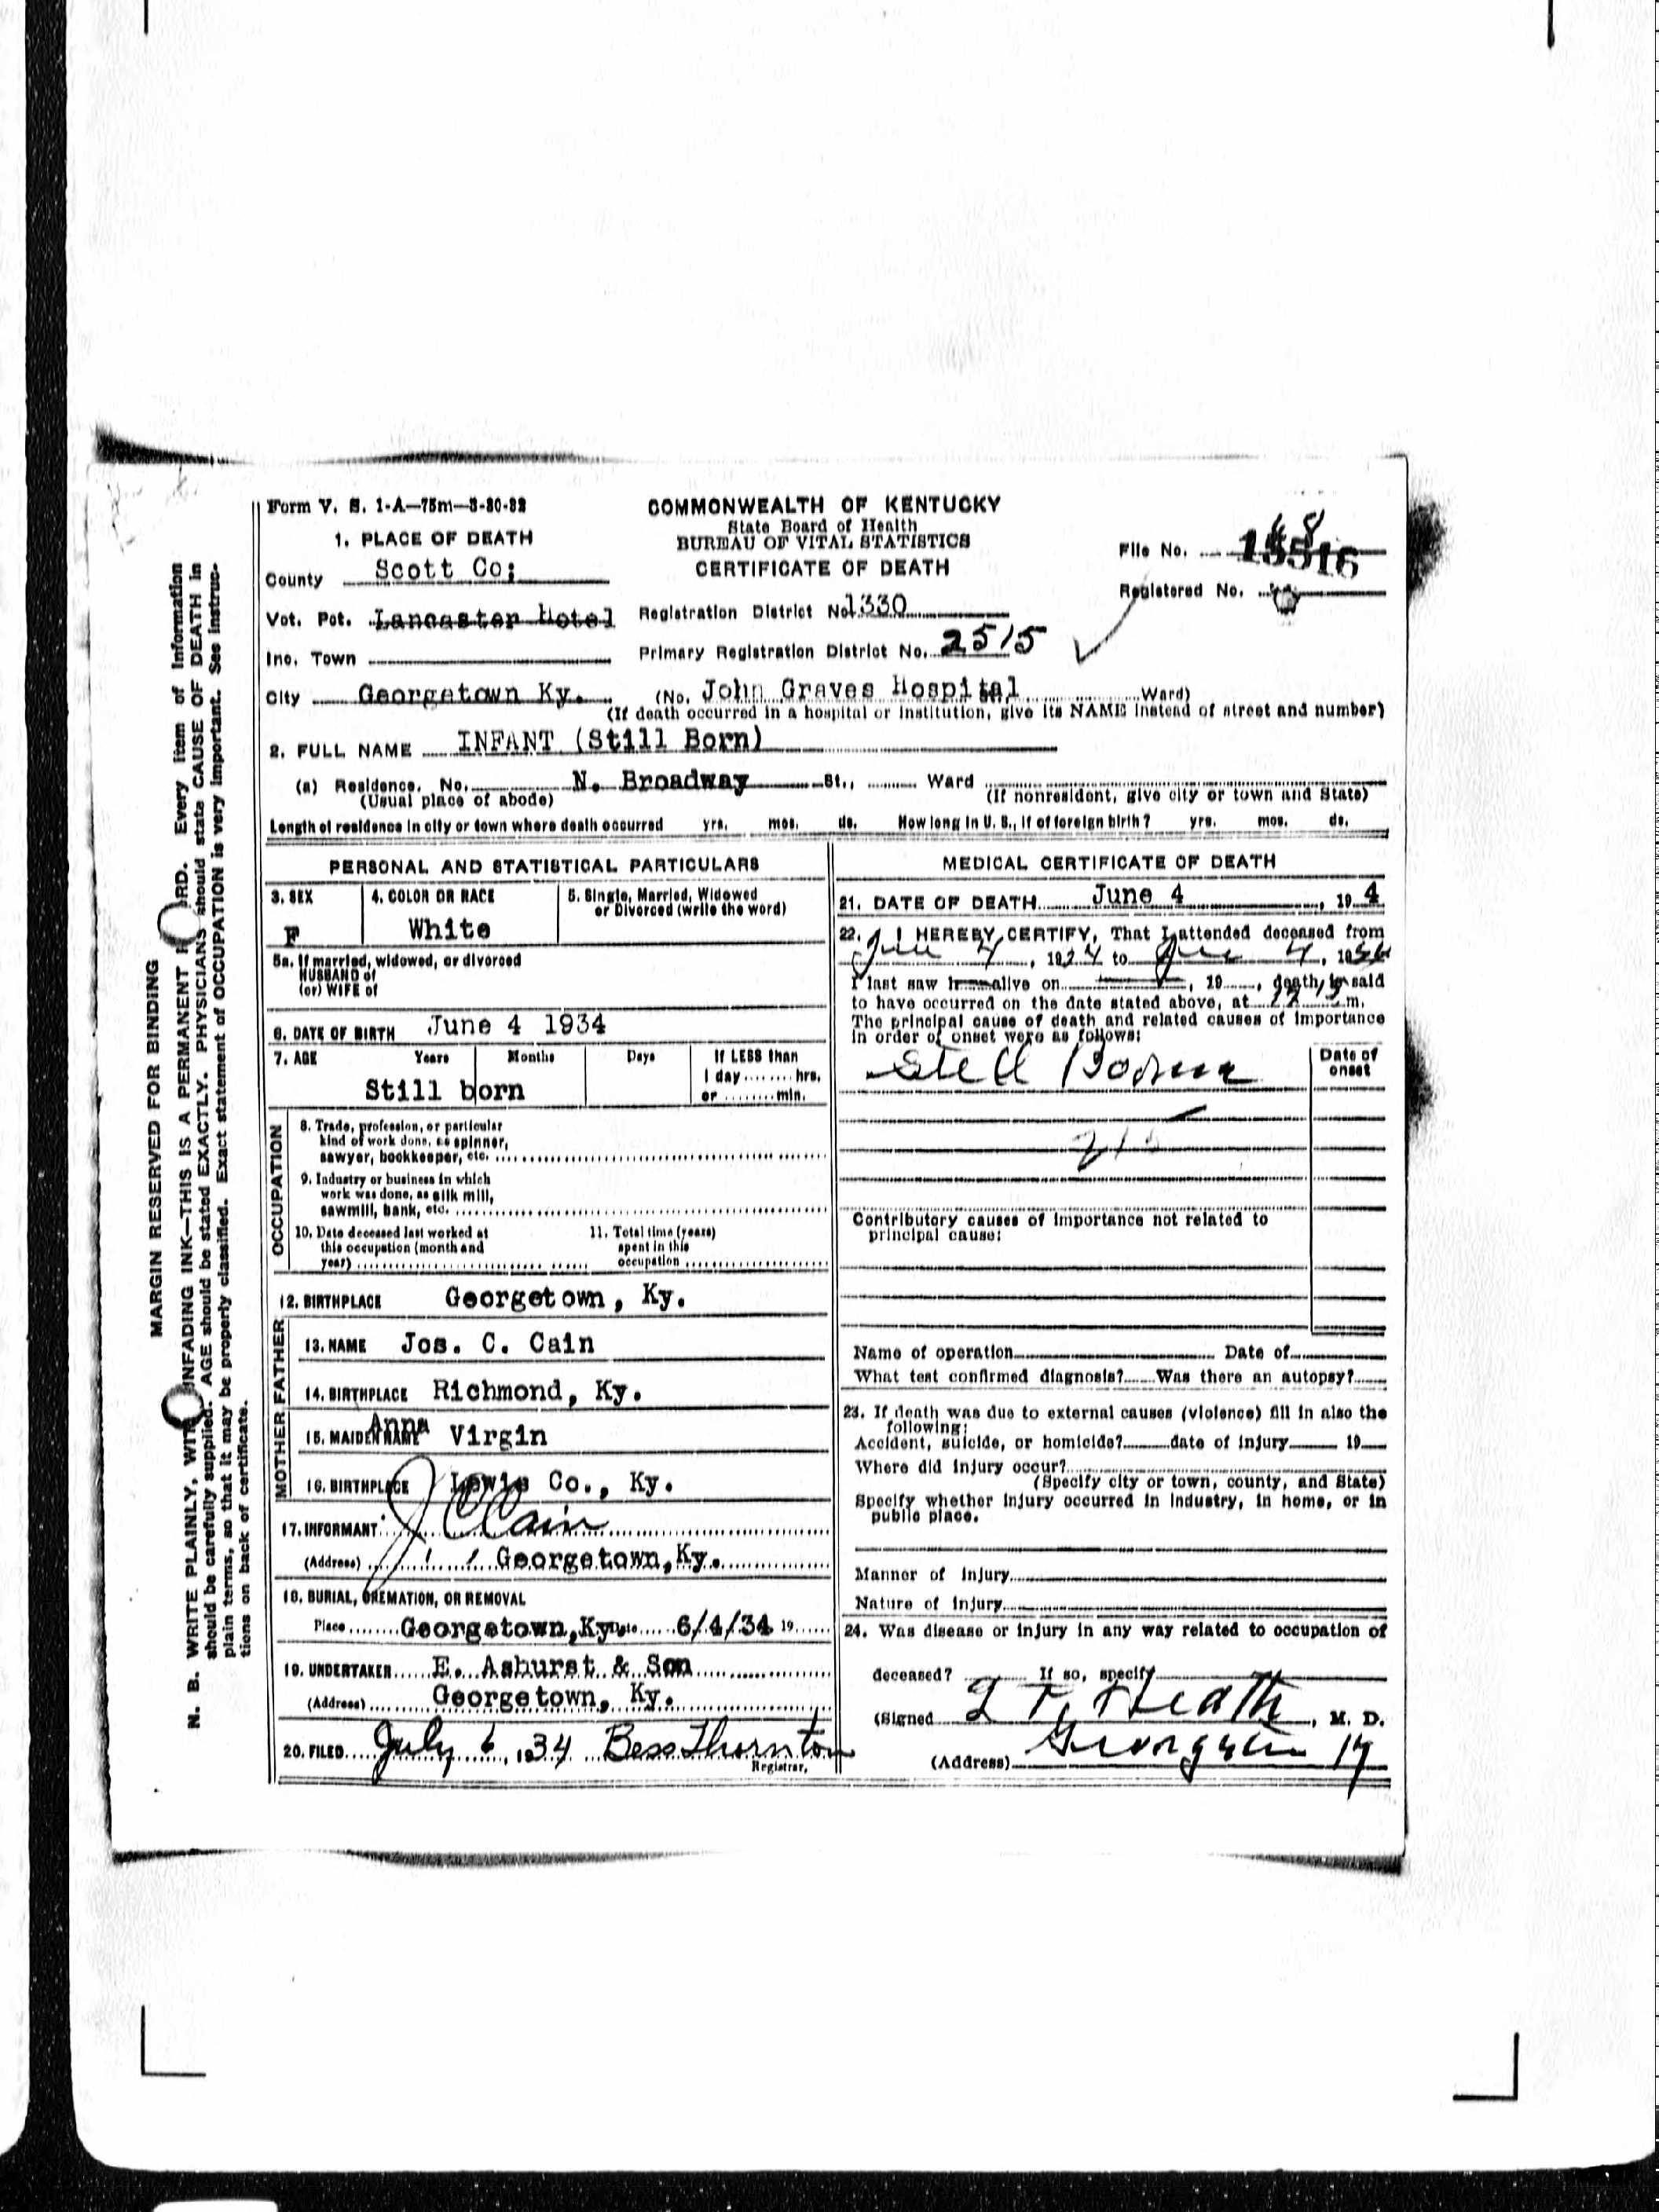 Form V. S. 1-A—75m—3-30-32
COMMONWEALTH OF KENTUCKY
State Board of Health
BUREAU OF VITAL STATISTICS
CERTIFICATE OF DEATH
File No.
Registered No.
1. PLACE OF DEATH
County Scott Co;
Vot. Pct. Lancaster Hotel Registration District No. 1330
Inc. Town Primary Registration District No. 2515
City Georgetown Ky. (No. John Graves Hospital Ward)
(If death occurred in a hospital or institution, give its NAME instead of street and number)
2. FULL NAME INFANT (Still Born)
(a) Residence. No. N. Broadway St., Ward
(Usual place of abode) (If nonresident, give city or town and State)
Length of residence in city or town where death occurred yrs. mos. ds. How long in U. S., if of foreign birth? yrs. mos. ds.
PERSONAL AND STATISTICAL PARTICULARS
3. SEX 4. COLOR OR RACE 5. Single, Married, Widowed
or Divorced (write the word)
F White
5a. If married, widowed, or divorced
HUSBAND of
(or) WIFE of
6. DATE OF BIRTH June 4 1934
7. AGE Years Months Days If LESS than
1 day hrs.
or min.
Still born
OCCUPATION
8. Trade, profession, or particular
kind of work done, as spinner,
sawyer, bookkeeper, etc.
9. Industry or business in which
work was done, as silk mill,
sawmill, bank, etc.
10. Date deceased last worked at 11. Total time (years)
this occupation (month and spent in this
year) occupation
12. BIRTHPLACE Georgetown, Ky.
FATHER
13. NAME Jos. C. Cain
14. BIRTHPLACE Richmond, Ky.
MOTHER
15. MAIDEN NAME Anna Virgin
16. BIRTHPLACE Lewis Co., Ky.
17. INFORMANT J C Cain
(Address) Georgetown, Ky.
18. BURIAL, CREMATION, OR REMOVAL
Place Georgetown, Ky Date 6/4/34 19
19. UNDERTAKER E. Ashurst & Son
(Address) Georgetown, Ky.
20. FILED July 6, 1934 Bess Thornton
Registrar.
MEDICAL CERTIFICATE OF DEATH
21. DATE OF DEATH June 4, 19 4
22. I HEREBY CERTIFY, That I attended deceased from
June 4, 1934 to June 4, 1934
I last saw h alive on , 19 , death is said
to have occurred on the date stated above, at m.
The principal cause of death and related causes of importance
in order of onset were as follows:
Date of
onset
Still Born
Contributory causes of importance not related to
principal cause:
Name of operation Date of
What test confirmed diagnosis? Was there an autopsy?
23. If death was due to external causes (violence) fill in also the
following:
Accident, suicide, or homicide? date of injury 19
Where did injury occur?
(Specify city or town, county, and State)
Specify whether injury occurred in industry, in home, or in
public place.
Manner of injury
Nature of injury
24. Was disease or injury in any way related to occupation of
deceased? If so, specify
(Signed Heath, M. D.
(Address) Georgetown Ky
MARGIN RESERVED FOR BINDING
N. B. WRITE PLAINLY, WITH UNFADING INK—THIS IS A PERMANENT RECORD. Every item of information
should be carefully supplied. AGE should be stated EXACTLY. PHYSICIANS should state CAUSE OF DEATH in
plain terms, so that it may be properly classified. Exact statement of OCCUPATION is very important. See instruc-
tions on back of certificate.